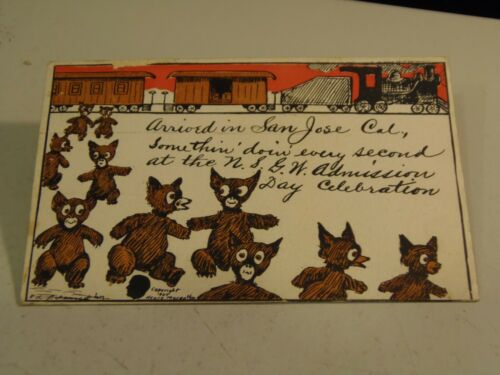 Arrived in San Jose Cal,
Somethin' doin' every second
at the N. S. G. W. Admission
Day Celebration
Copyright